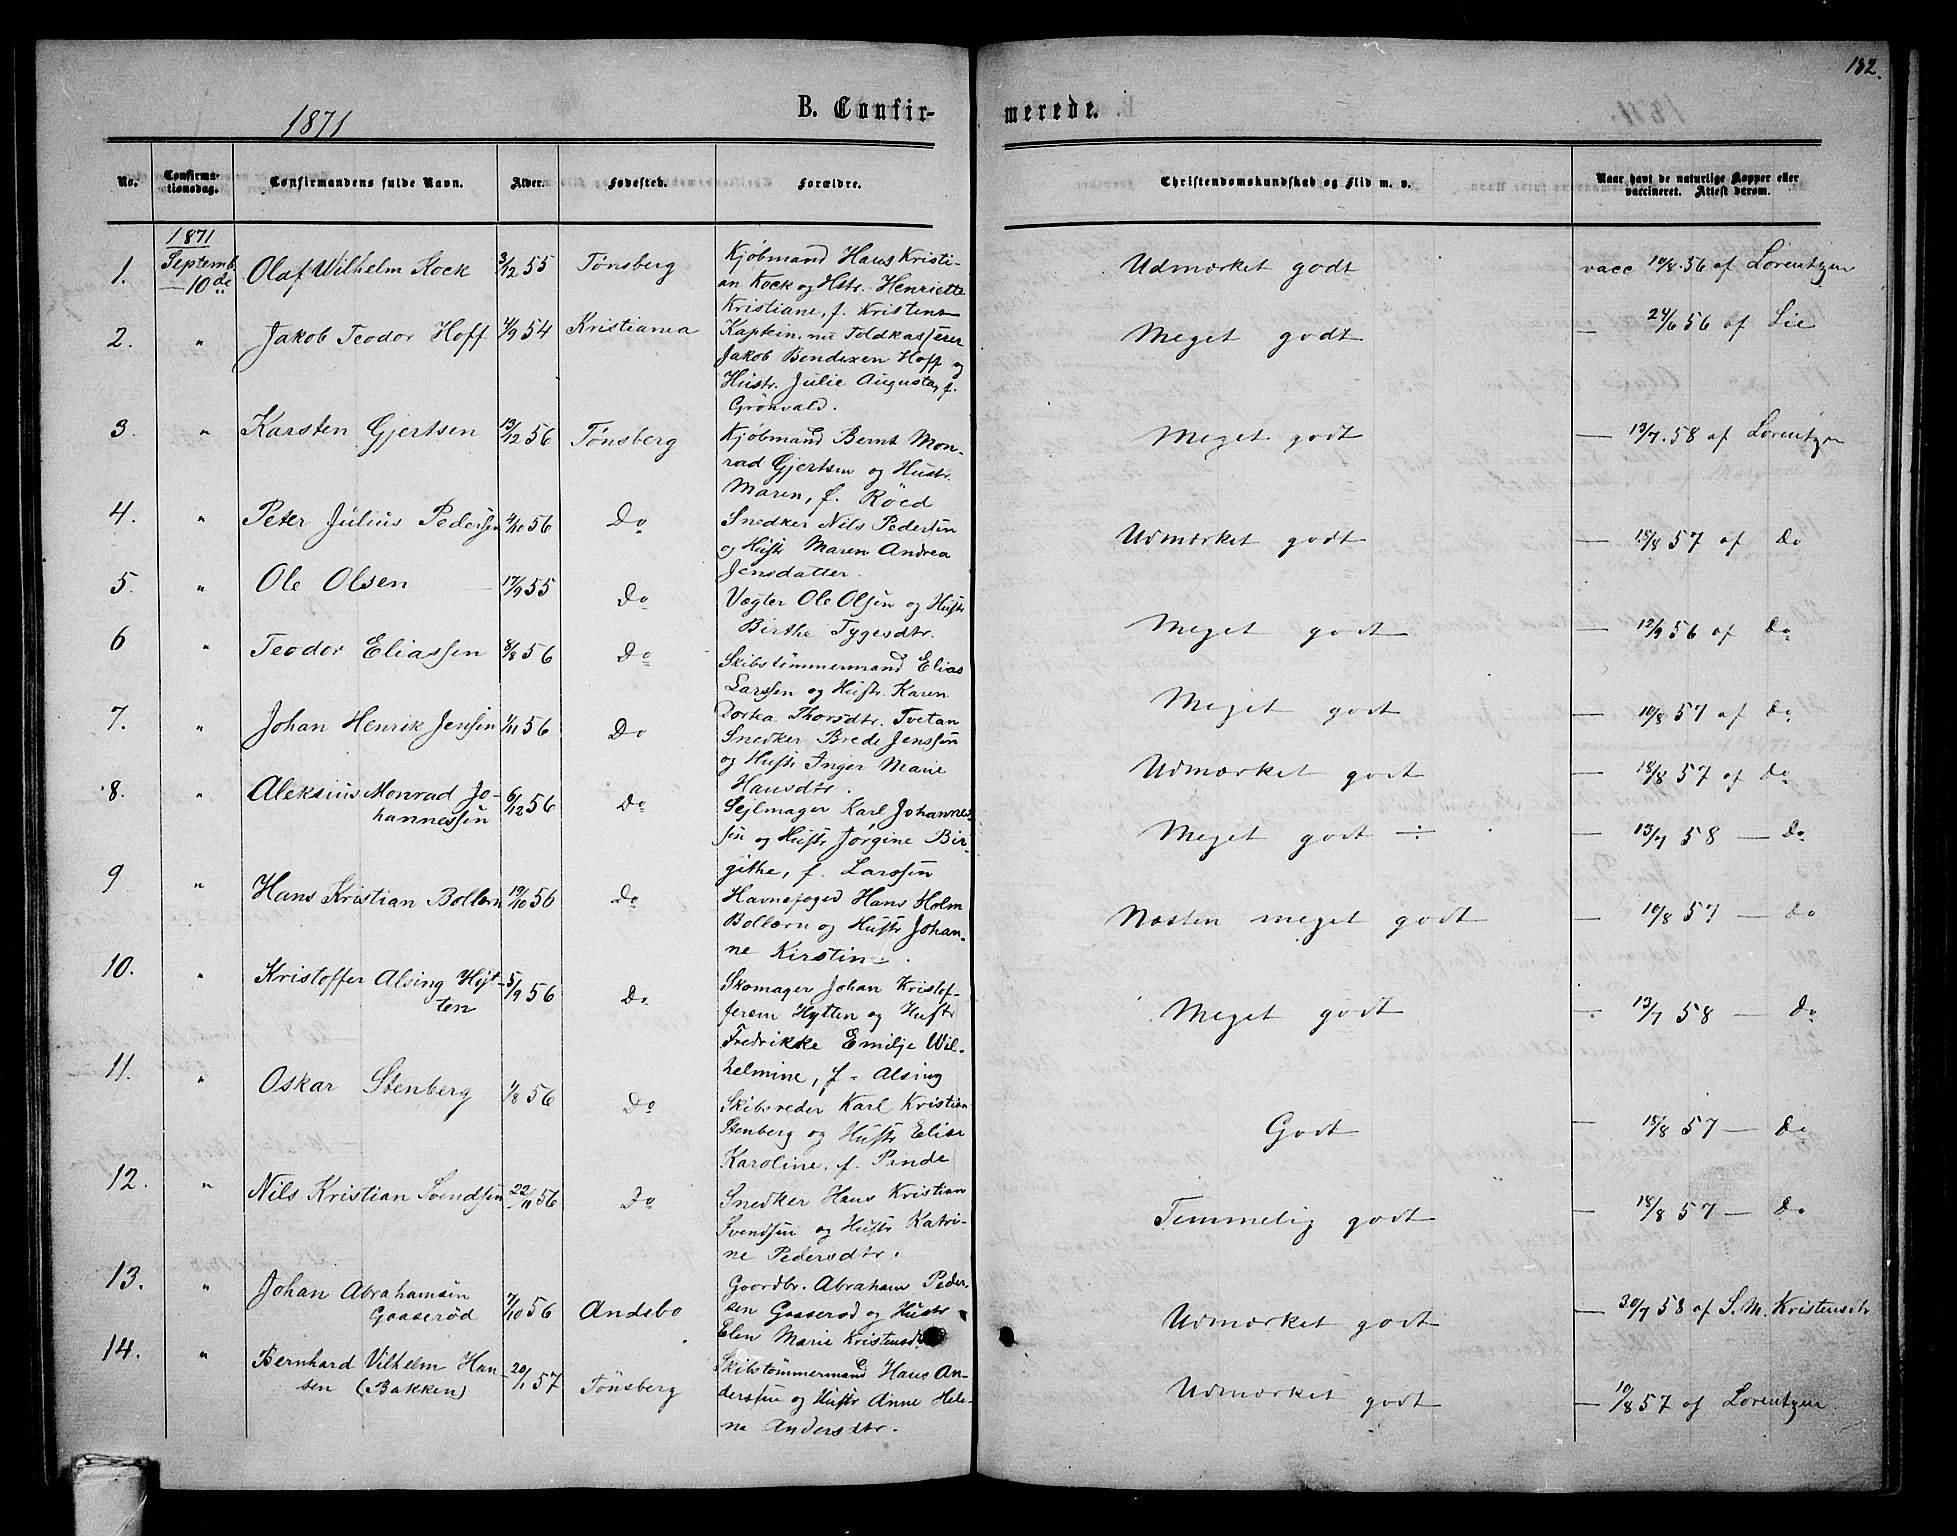 132.
1871
B. Confirmerede.
No. Confirmationsdag. Confirmandens fulde Navn. Alder. Fødested. Forældre. Christendomskundskab og Flid m. v. Naar havt de naturlige Kopper eller vaccineret. Attest derom.
1. 1871 Septemb. 10de Olaf Wilhelm Kock 3/12 55 Tønsberg Kjøbmand Hans Kristi- Udmærket godt vacc 10/8. 56 af Lorentzen
an Kock og Hstr. Henriette
Kristiane, f. Kristens
2. " Jakob Teodor Hoff 4/9 54 Kristiania Kaptein, nu Toldkasserer Meget godt — 24/6 56 af Lie
Jakob Bendixen Hoff og
Hustr. Julie Augusta, f.
Grönvald.
3. " Karsten Gjertsen 13/12 56 Tønsberg Kjøbmand Bernt Mon- Meget godt — 13/7. 58 af Lorentzen
rad Gjertsen og Hustr.
Maren, f. Röed
4. " Peter Julius Pedersen 4/10 56 Do Snedker Nils Pedersen Udmærket godt — 18/8 57 af Do
og Hustr Maren Andrea
Jensdatter.
5. " Ole Olsen 17/9 55 Do Vægter Ole Olsen og Hustr Meget godt — 12/9 56 af Do
Birthe Tygesdtr.
6 " Teodor Eliassen 8/8 56 Do Skibstömmermand Elias Meget godt — 10/8 57 af Do
Larssen og Hustr. Karen
Dortea Thorsdtr. Tvetan
7. " Johan Henrik Jenssen 1/11 56 Do Snedker Brede Jenssen Udmærket godt — 18/8 57 af Do
og Hustr Inger Marie
Hansdtr.
8. " Aleksius Monrad Jo- 6/12 56 Do Sejlmager Karl Johannes- Meget godt ÷ — 13/7 58 — Do
hannessen sen og Hustr Jørgine Bir-
githe, f. Larssen
9 " Hans Kristian Bollærn 19/10 56 Do Havnefoged Hans Holm Næsten meget godt — 10/8 57 — Do
Bollærn og Hustr Johan-
ne Kirstine.
10. " Kristoffer Alsing Hyt- 5/9 56 Do Skomager Johan Kristof- Meget godt — 13/7 58 — Do
ten fersen Hytten og Hustr
Fredrikke Emilje Wil-
helmine, f. Alsing
11. " Oskar Stenberg 1/8 56 Do Skibsreder Karl Kristian Godt — 18/8 57 — Do
Stenberg og Hustr Elise
Karoline, f. Pinde
12. " Nils Kristian Svendsen 22/11 56 Do Snedker Hans Kristian Temmelig godt — 18/8 57 — Do
Svendsen og Hustr Katri-
ne Pedersdtr.
13. " Johan Abrahamsen 7/10 56 Andebo Gaardbr. Abraham Peder- Udmærket godt — 30/7 58 af S. M. Kristensdtr
Gaaserød sen Gaaserød og Hustr
Elen Marie Kristensdtr
14. " Bernhard Vilhelm Han- 20/1 57 Tönsberg Skibstömmermand Hans An- Udmærket godt — 10/8 57 af Lorentzen
sen (Bakken) derssen og Hustr Anne Hele-
ne Andersdtr.